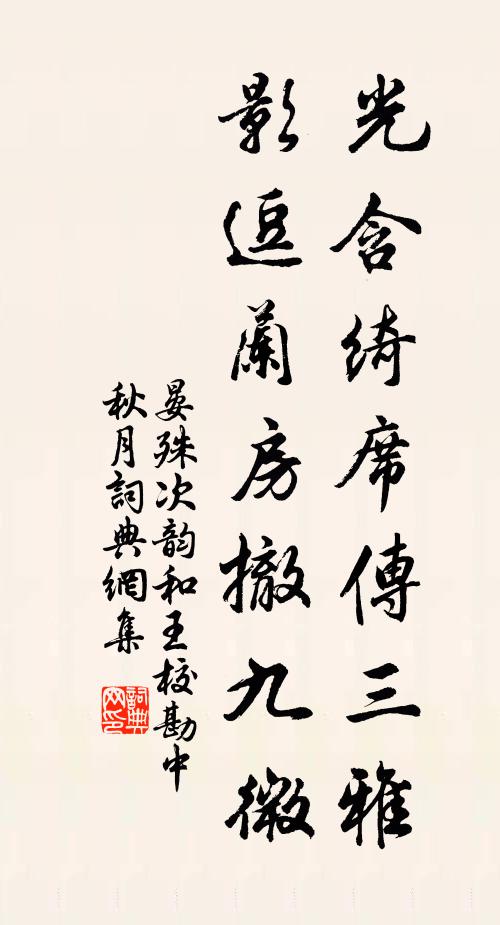 光含綺席傳三雅
影逗蘭房撤九微
晏殊次韵和王校勘中
秋月詞典網集
詞典網印